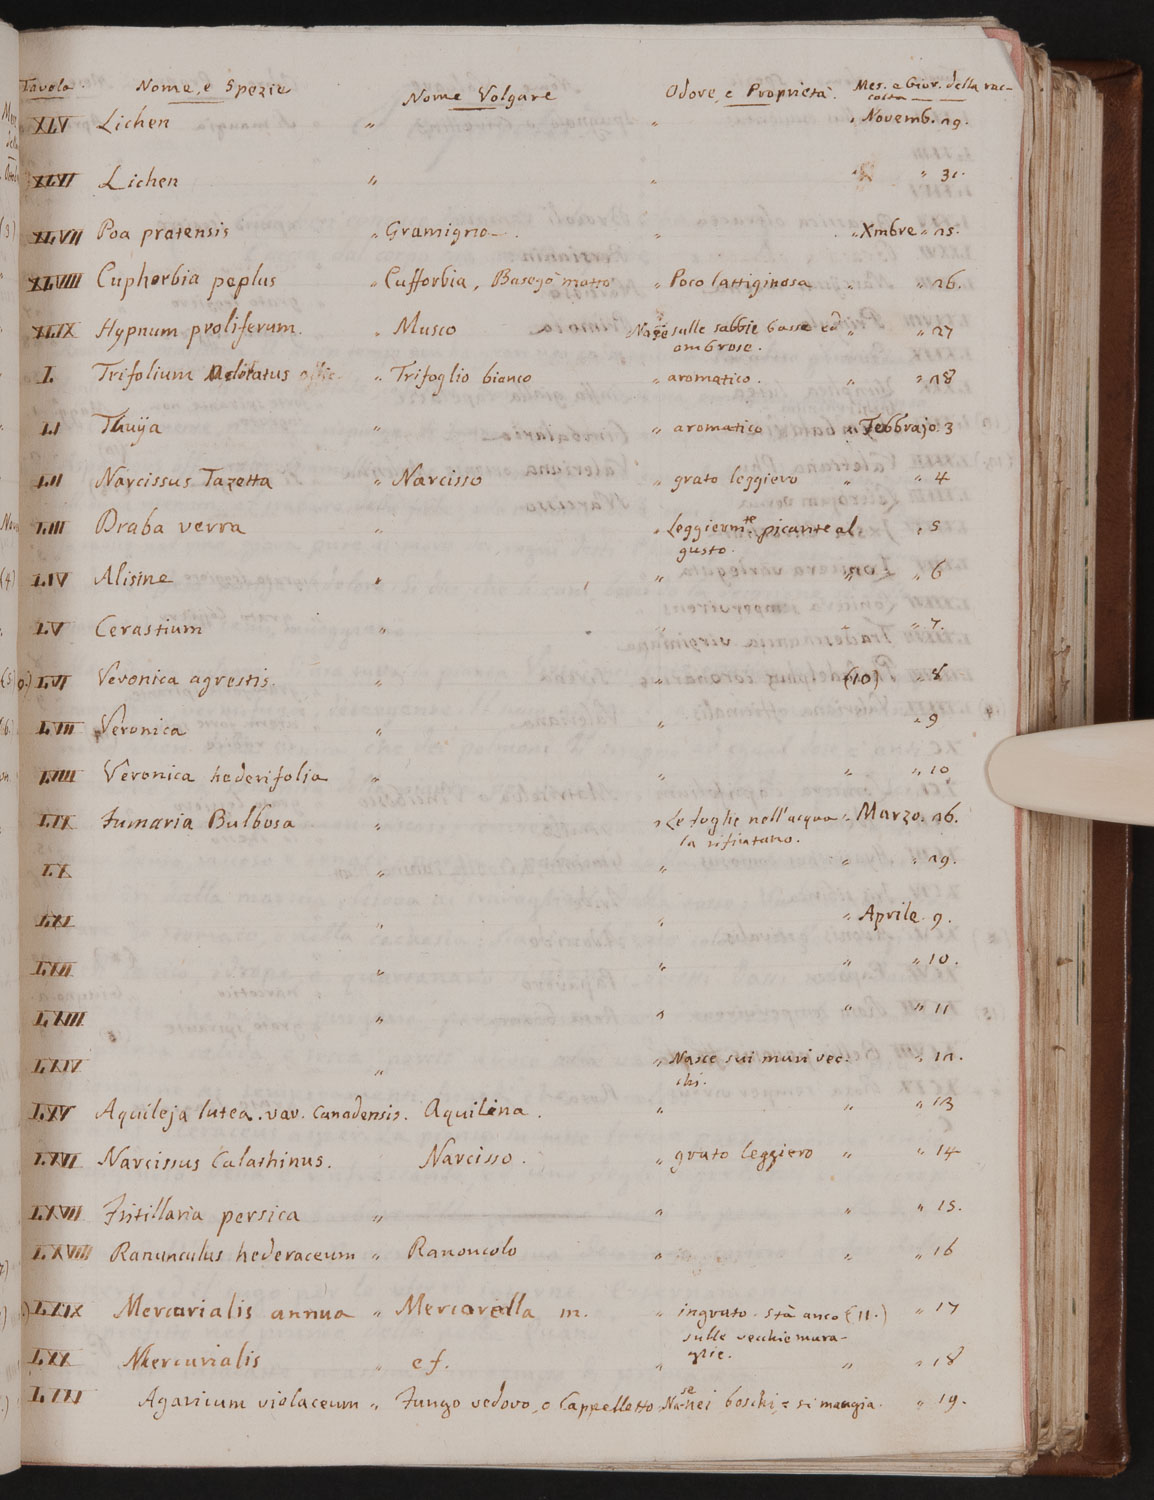 Tavola Nome, e Spezie Nome Volgare Odore, e Proprietà. Mes. e Gior. della rac-
colta
XLV Lichen " " " Novemb. 29.
XLVI Lichen " " " " 30.
XLVII Poa pratensis " Gramigna. " " Xmbre " 25.
XLVIII Euphorbia peplus " Eufforbia, Basegò matto " Poco lattiginosa " " 26.
XLIX Hypnum proliferum. " Musco Nasce sulle sabbie basse ed " " 27
ombrose.
L Trifolium Melilotus offic. " Trifoglio bianco " aromatico. " " 28
LI Thuija " " aromatico " Febbrajo. 3
LII Narcissus Tazetta " Narcisso " grato leggiero " " 4
LIII Draba verna " " Leggierm.te picante al " 5
gusto.
LIV Alisine " " " " 6
LV Cerastium " " " 7.
LVI Veronica agrestis. " " (10) " 8
LVII Veronica " " " 9
LVIII Veronica hederifolia " " " " 10
LIX Fumaria Bulbosa " " Le foglie nell'acqua " Marzo. 26.
la rifiutano.
LX " " " " 29.
LXI " " " Aprile 9.
LXII " " " " 10.
LXIII " " " " 11
LXIV " " Nasce sui muri vec- " 12.
chi.
LXV Aquileja lutea. var. Canadensis. Aquilina. " " " 13
LXVI Narcissus Calathinus. Narcisso. " grato leggiero " " 14
LXVII Fritillaria persica " " " " 15.
LXVIII Ranunculus hederaceum " Ranoncolo " " " 16
LXIX Mercurialis annua " Mercorella m. " ingrato. stà anco (11.) " 17
sulle vecchie mura-
glie.
LXX Mercurialis " e f. " " " 18
LXXI Agaricum violaceum " Fungo vedovo, o Cappelletto Na.se nei boschi, e si mangia. " 19.